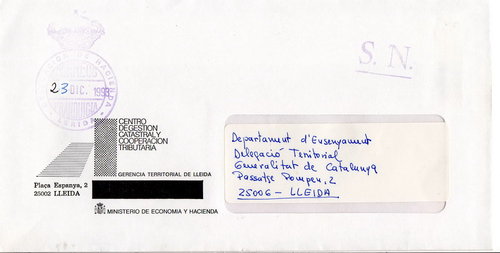 S. N.
23 DIC. 199
CENTRO
DE GESTION
CATASTRAL Y
COOPERACION
TRIBUTARIA
GERENCIA TERRITORIAL DE LLEIDA
Plaça Espanya, 2
25002 LLEIDA
MINISTERIO DE ECONOMIA Y HACIENDA
Departament d'Ensenyament
Delegació Territorial
Generalitat de Catalunya
Passatge Pompeu, 2
25006 - LLEIDA